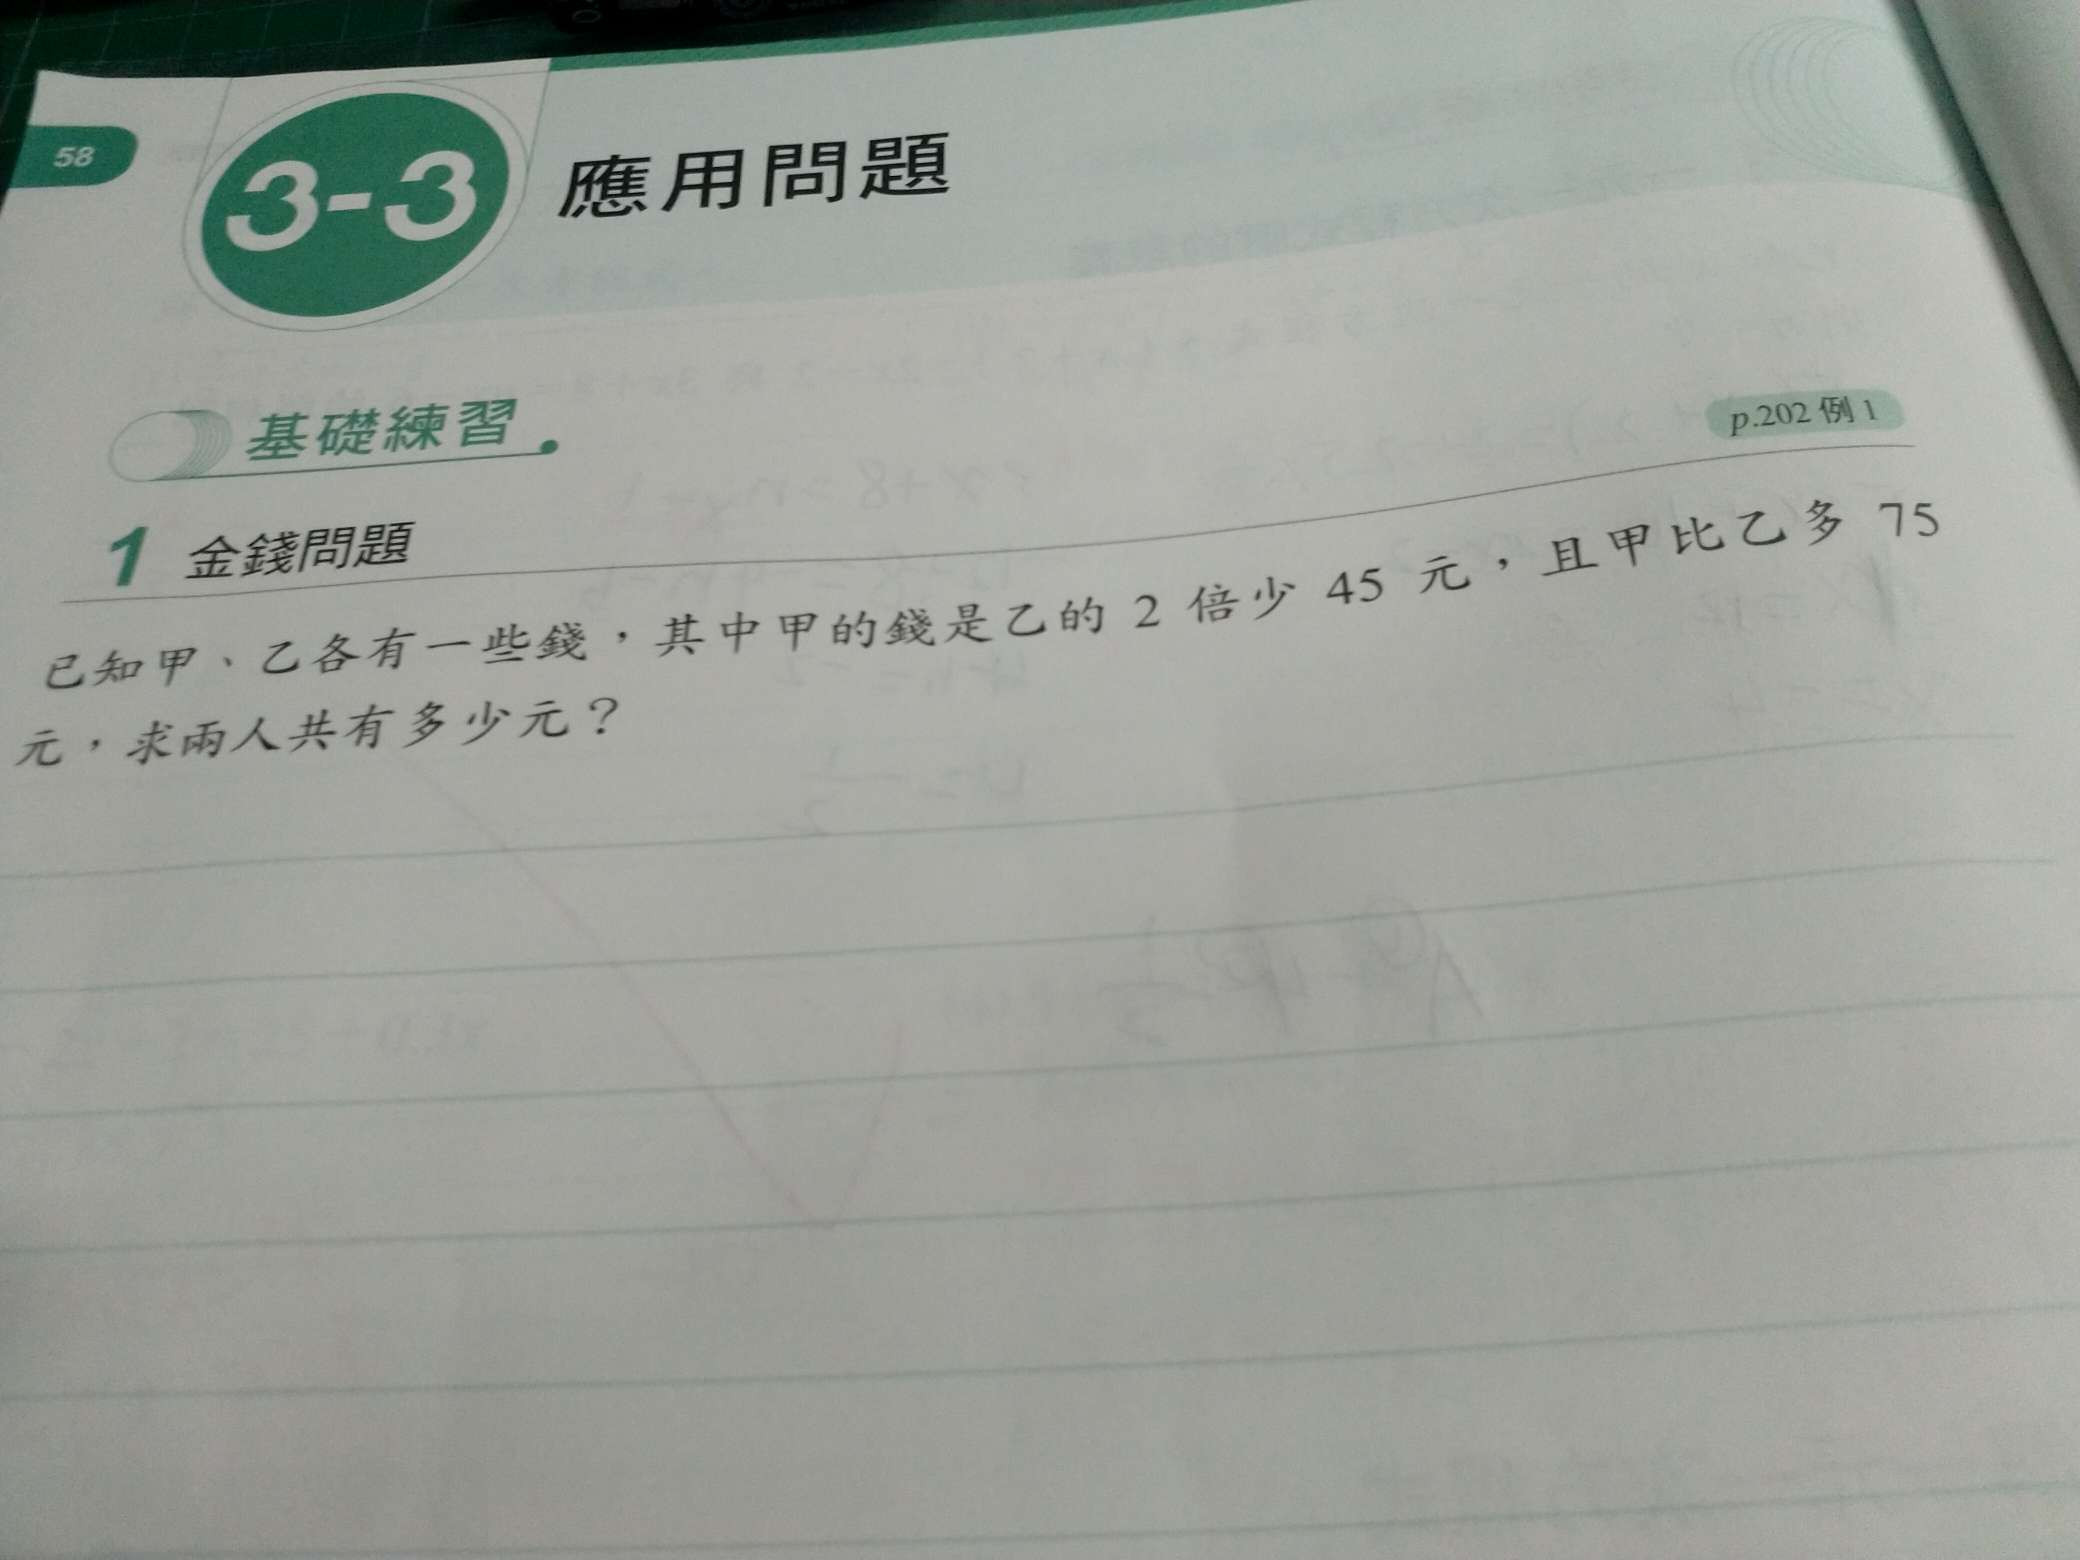 58
3-3 應用問題
基礎練習
p.202 例 1
1 金錢問題
已知甲、乙各有一些錢，其中甲的錢是乙的 2 倍少 45 元，且甲比乙多 75
元，求兩人共有多少元？